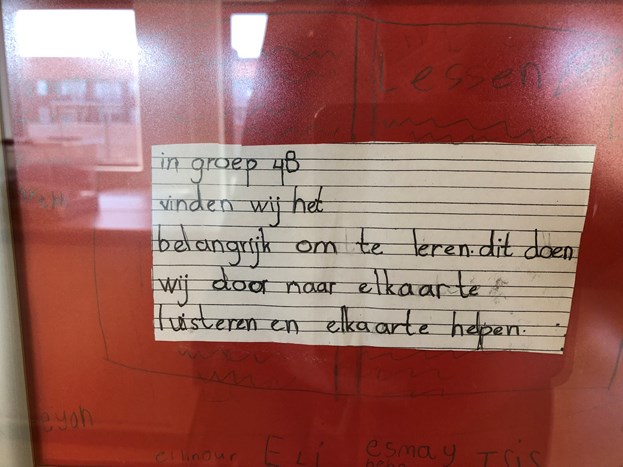 Lessen
in groep 4B
vinden wij het
belangrijk om te leren. dit doen
wij door naar elkaar te
luisteren en elkaarte helpen.
Eli esmay Iris